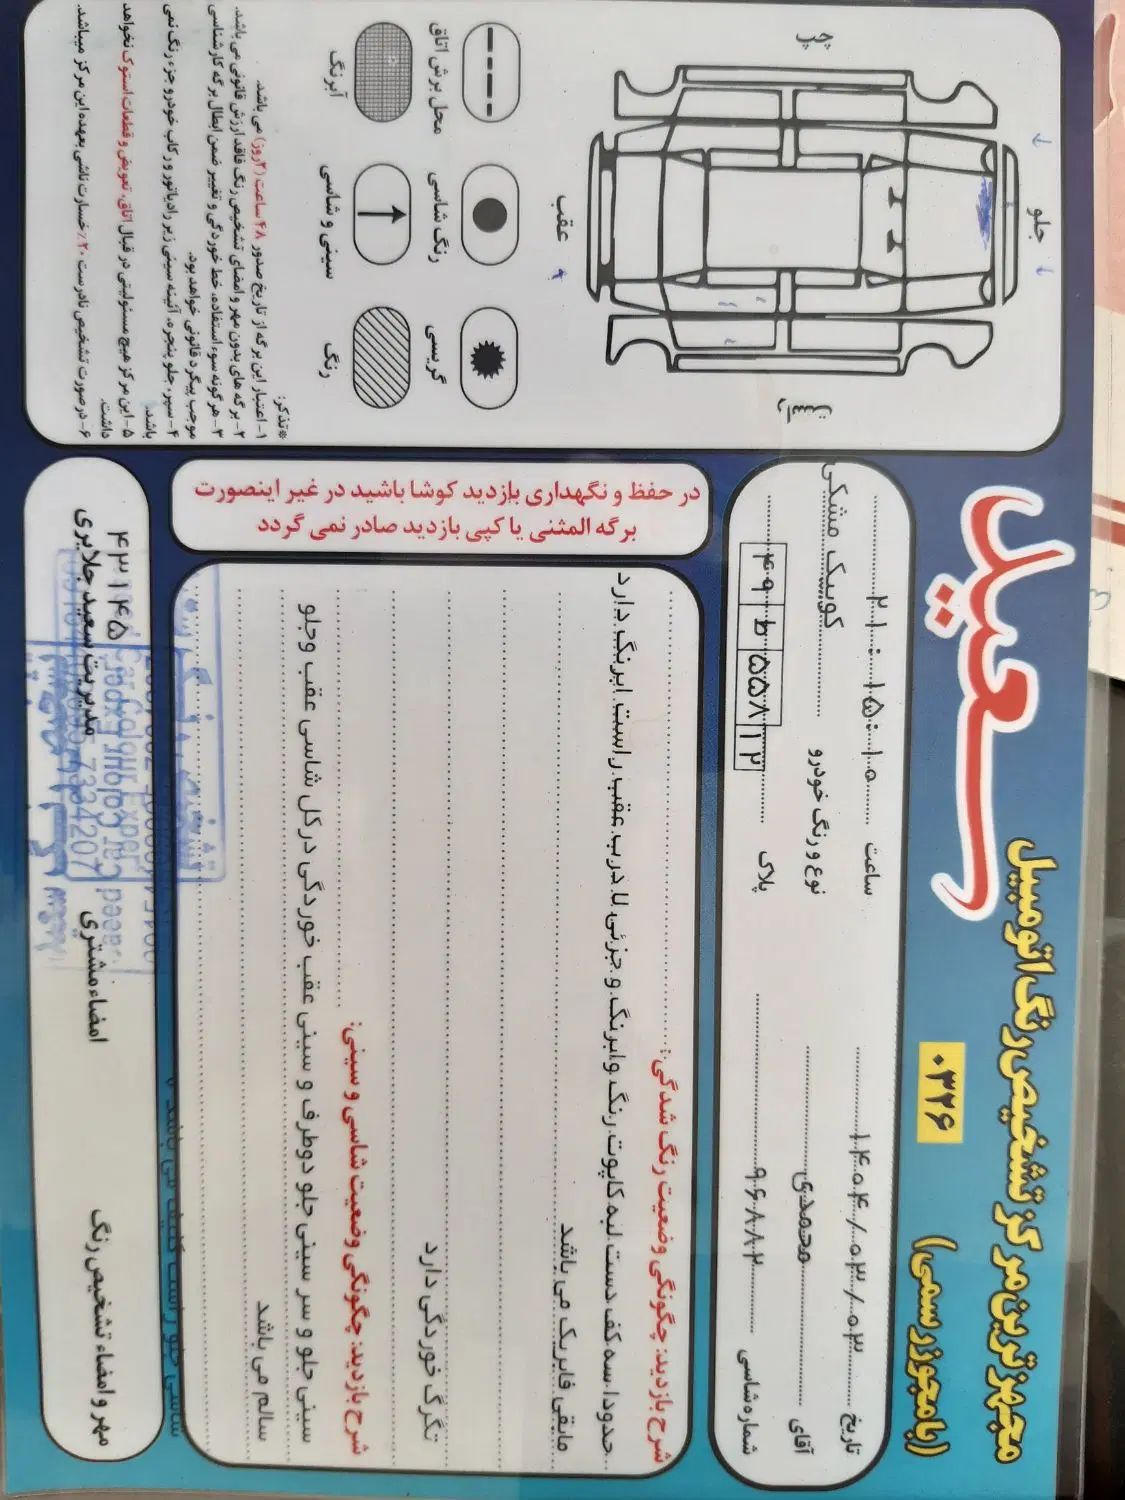 سعید
مجهز ترین مرکز تشخیص رنگ اتومبیل
(با مجوز رسمی)
۰۳۲۶
تاریخ ۱۴۰۴/۰۳/۰۳ ساعت ۲۱:۱۵:۱۰
آقای محمدی نوع و رنگ خودرو کوییک مشکی
شماره شاسی ۹۶۸۸۲ پلاک ۴۹ ط ۵۵۸ ۱۲
جلو
چپ
راست
عقب
محل برش اتاق
رنگ شاسی
گریسی
آبرنگ
سینی و شاسی
رنگ
*تذکر:
۱- اعتبار این برگه از تاریخ صدور ۴۸ ساعت (۲روز) می باشد.
۲- برگه های بدون مهر و امضای تشخیص رنگ فاقد ارزش قانونی می باشد.
۳- هر گونه سوء استفاده، خط خوردگی و تغییر ضمن ابطال برگه کارشناسی
موجب پیگرد قانونی خواهد بود.
۴- سپر، جلو پنجره، آئینه سینی زیر رادیاتور و رکاب خودرو جزء رنگ نمی
باشد.
۵- این مرکز هیچ مسئولیتی در قبال اتاق، تعویض و قطعات استوک نخواهد
داشت.
۶- در صورت تشخیص نادرست ۲۰٪ خسارت ناشی بعهده این مرکز میباشد.
در حفظ و نگهداری بازدید کوشا باشید در غیر اینصورت
برگه المثنی یا کپی بازدید صادر نمی گردد
شرح بازدید: چگونگی وضعیت رنگ شدگی:
حدودا سه کف دست لبه کاپوت رنگ وابرنگ و جزئی لا درب عقب راست ابرنگ دارد
مابقی فابریک می باشد
تگرگ خوردگی دارد
شرح بازدید: چگونگی وضعیت شاسی و سینی:
سینی جلو و سر سینی جلو دوطرف و سینی عقب خوردگی درکل شاسی عقب وجلو
سالم می باشد
مهر و امضاء تشخیص رنگ
امضاء مشتری
۴۳۱۴۵
مدیریت سعید جلایری
Car Colour Expert
7334207